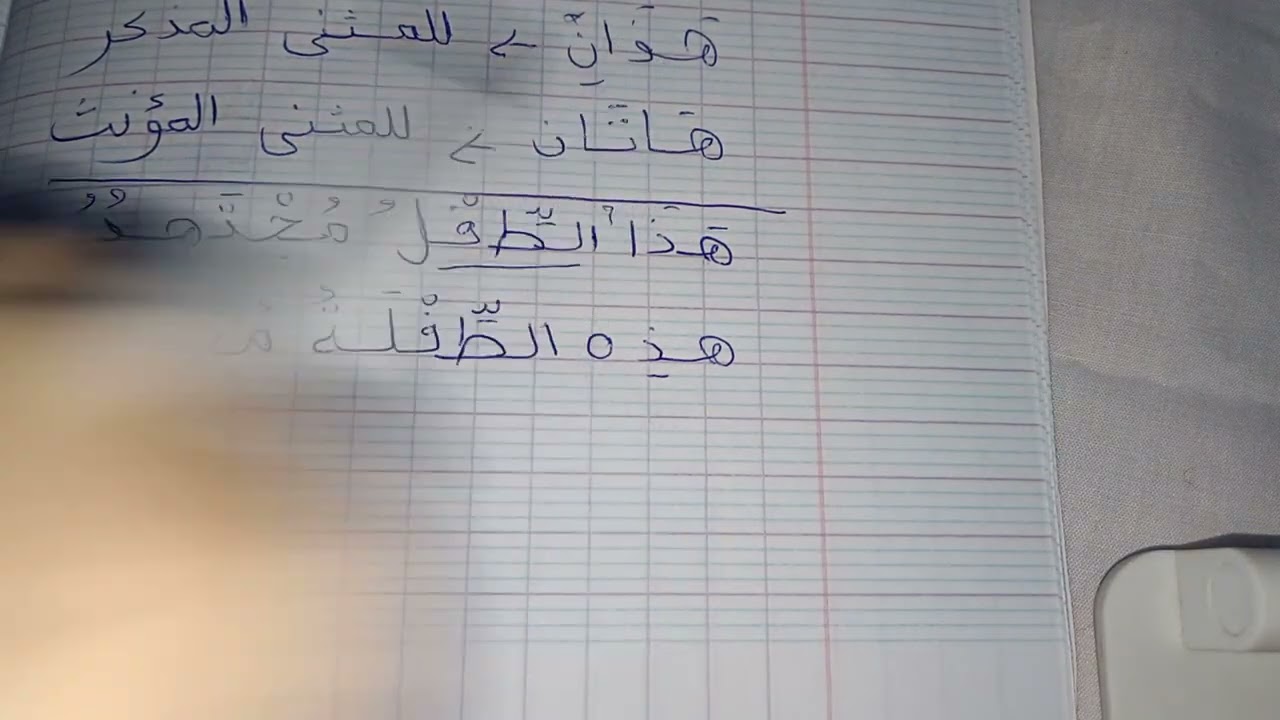 هَوَانِّ > للمثنى المذكر
هَاتَان > للمثنى المؤنث
هَذَا الطِّفْلُ مُجْتَهِدٌ
هذِه الطِّفْلَةُ